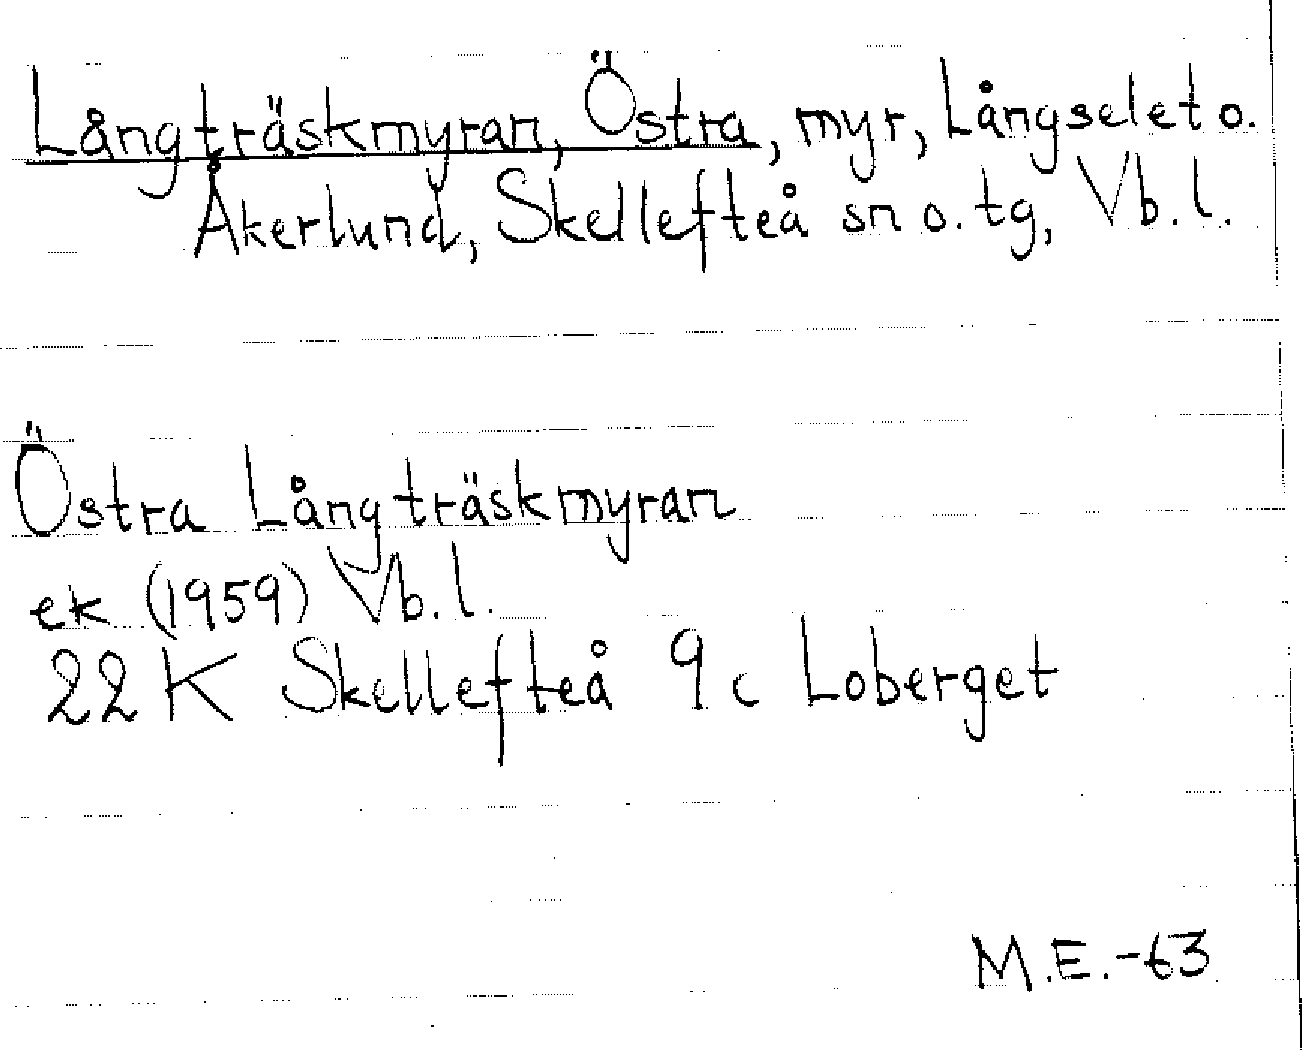 Långträskmyran, Östra, myr, Långselet o.
Åkerlund, Skellefteå sn o. tg, Vb. l.
Östra Långträskmyran
ek (1959) Vb. l.
22 K Skellefteå 9 c Loberget
M.E.-63